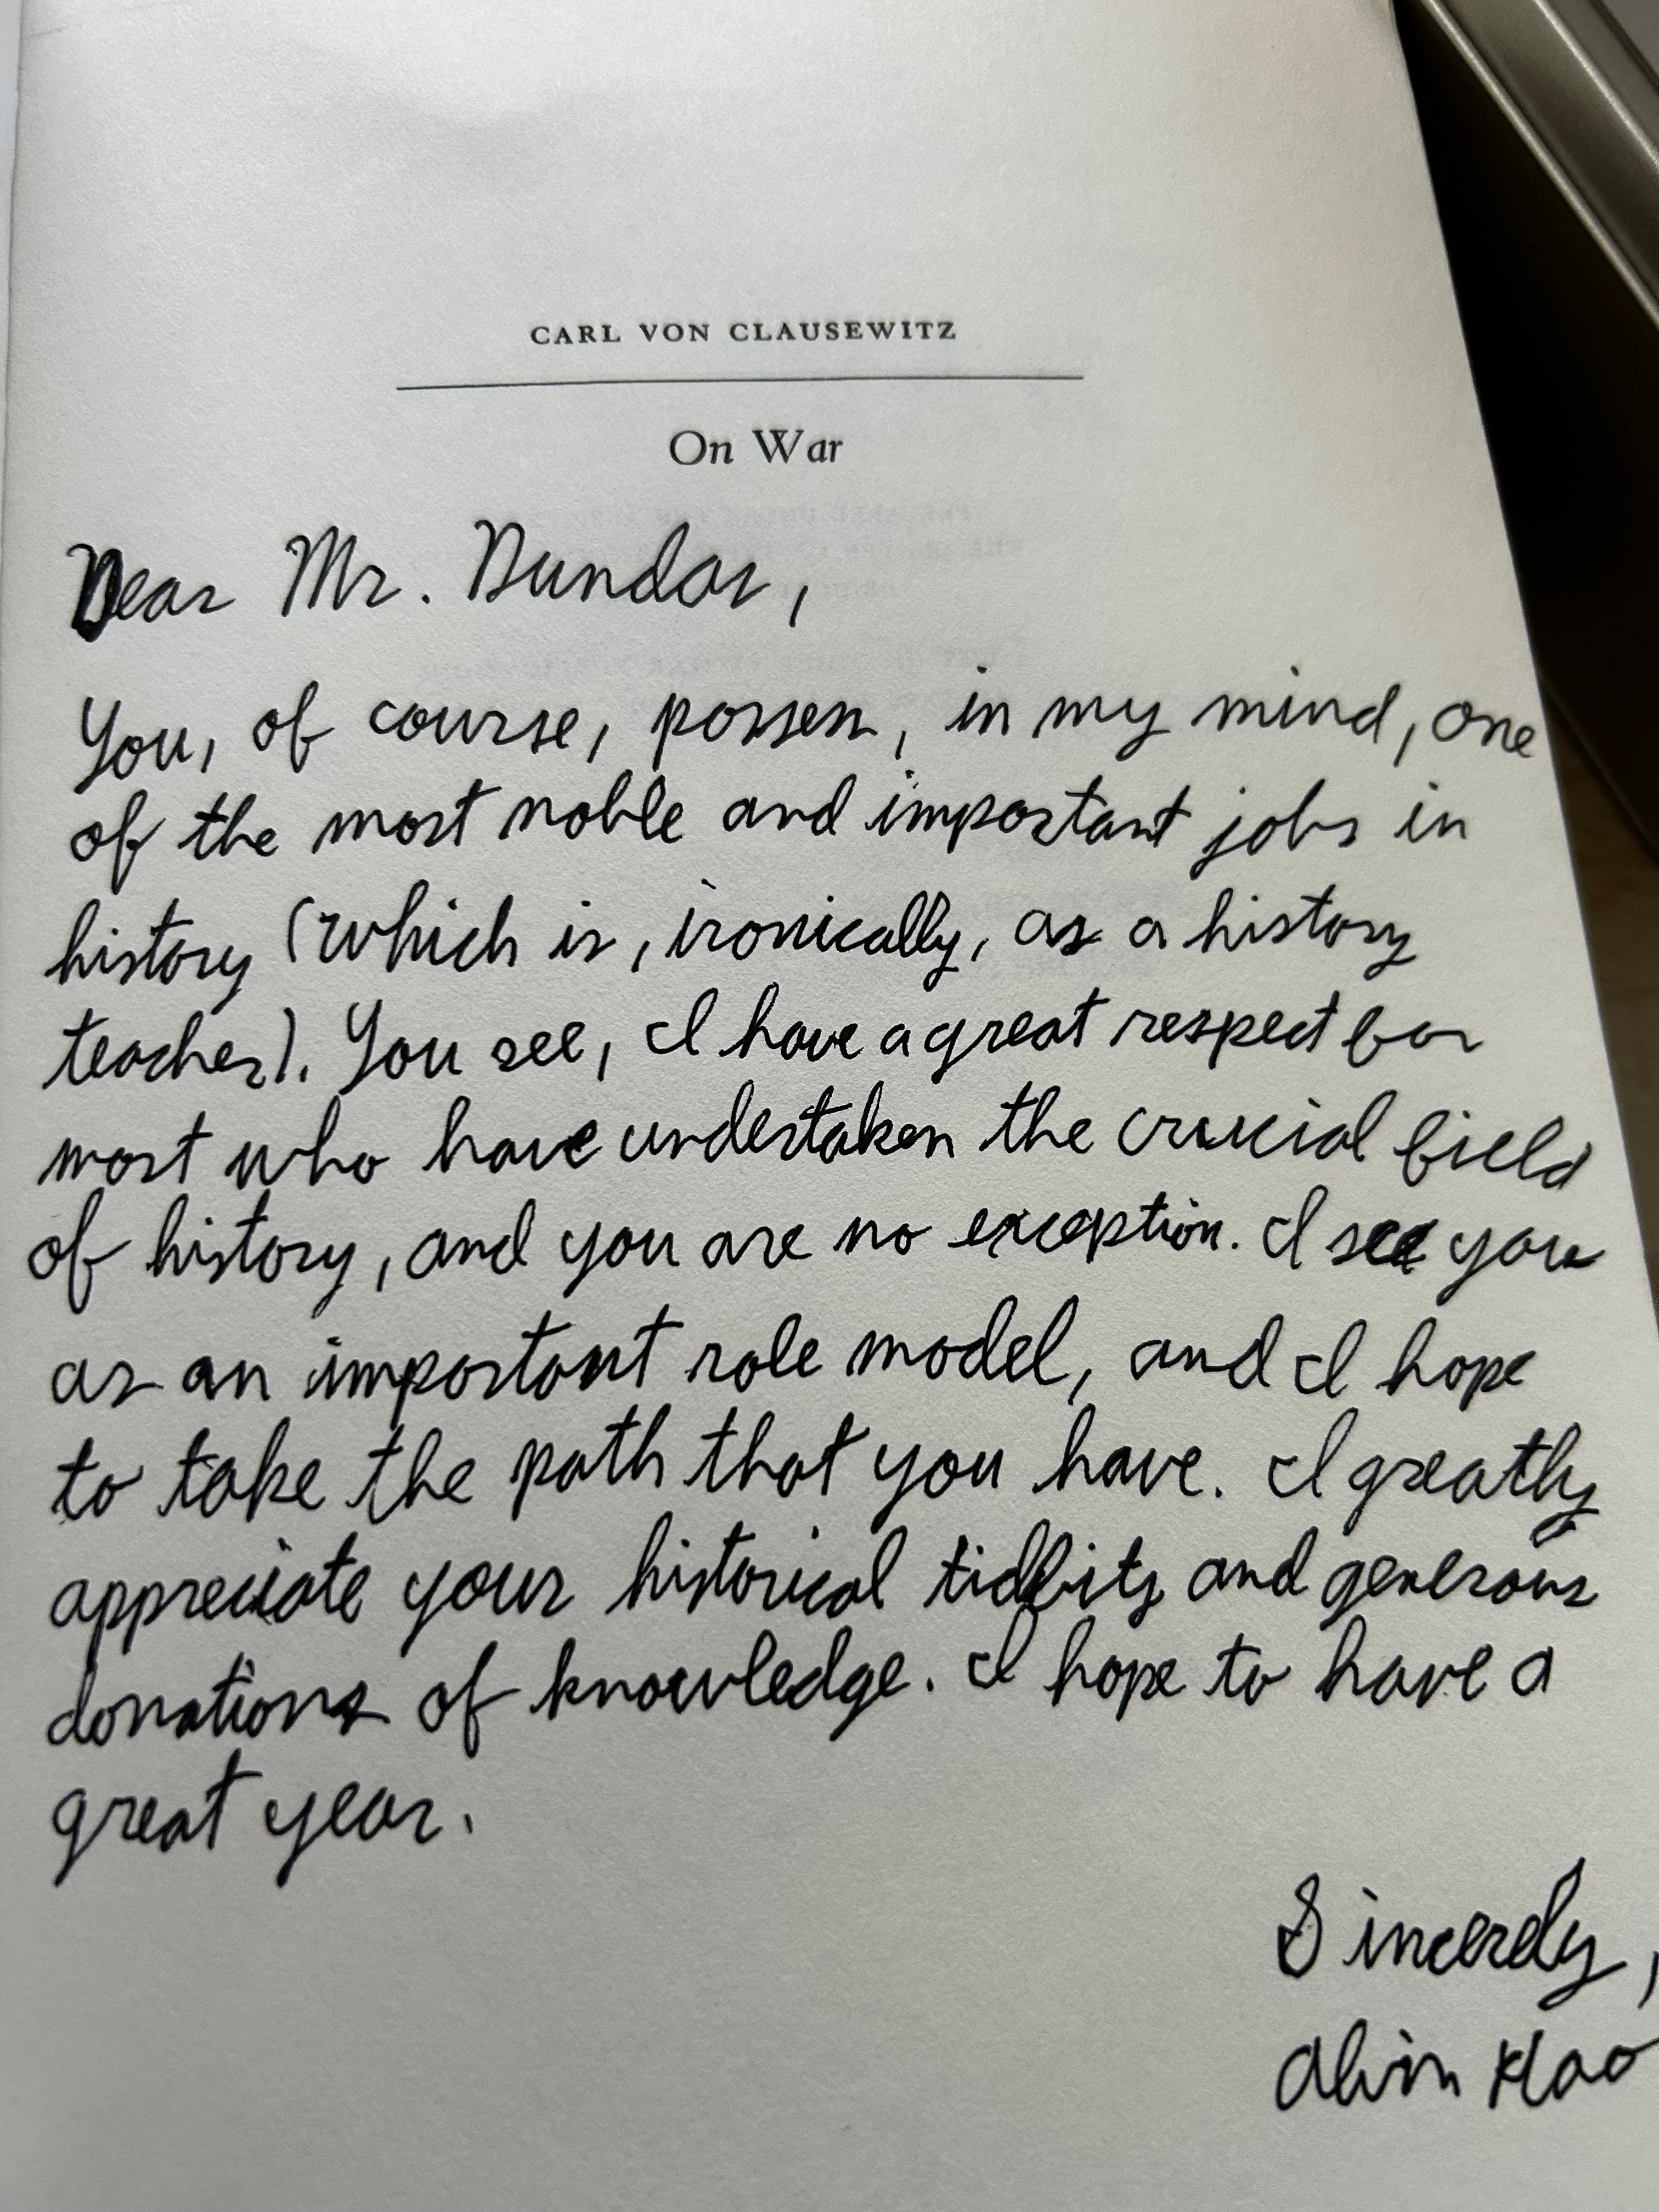 CARL VON CLAUSEWITZ
On War
Dear Mr. Dundar,
You, of course, possess, in my mind, one
of the most noble and important jobs in
history (which is, ironically, as a history
teacher). You see, I have a great respect for
most who have undertaken the crucial field
of history, and you are no exception. I see you
as an important role model, and I hope
to take the path that you have. I greatly
appreciate your historical tidbits and generous
donations of knowledge. I hope to have a
great year.
Sincerely,
Alvin